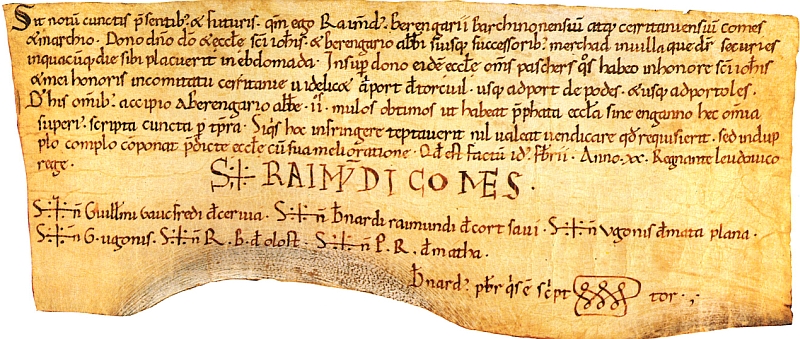 Sit notū cunctis p̄sentib; & futuris. qm̄ ego Raimūd; Berengarii barchinonensiū atq; cerritaniensiū comes
& marchio. Dono dn̄o dō & eccl̄e sc̄i ioh̄is. & berengario abb̄i suisq; successorib; merchad in uilla que dr̄ securies
in quacūq; die sibi placuerit in ebdomada. Insup̄ dono eidē eccl̄e om̄s paschers q̄s habeo in honore sc̄i ioh̄is
& mei honoris in comitatu cerritanie uidelic& a port de torcuil. usq; ad port de podes. & usq; ad portoles.
P̄ his om̄ib; accipio a berengario abb̄e .ii. mulos obtimos ut habeat p̄phata eccl̄a sine enganno hec om̄ia
superi; scripta cuncta p tp̄ra. Siq̄s hoc infringere teptauerit nil ualeat uendicare qd̄ requisierit. sed in dup
plo complo coponat p̄dicte eccl̄e cū sua melioratione. Qd̄ est factū id; fb̄rii. Anno .xx. Regnante leudouico
rege.
S✢ RAIMVDI COMES.
S✢n̄ Guillm̄i gaucfredi de ceruia. S✢n̄ b̄nardi raimundi de cort saui. S✢n̄ vgonis de mata plana.
S✢n̄ G. ugonis. S✢n̄ R. B. de olost. S✢n̄ P. R. de matha.
b̄nard; pb̄r q̄s ē sc̄ript tor.